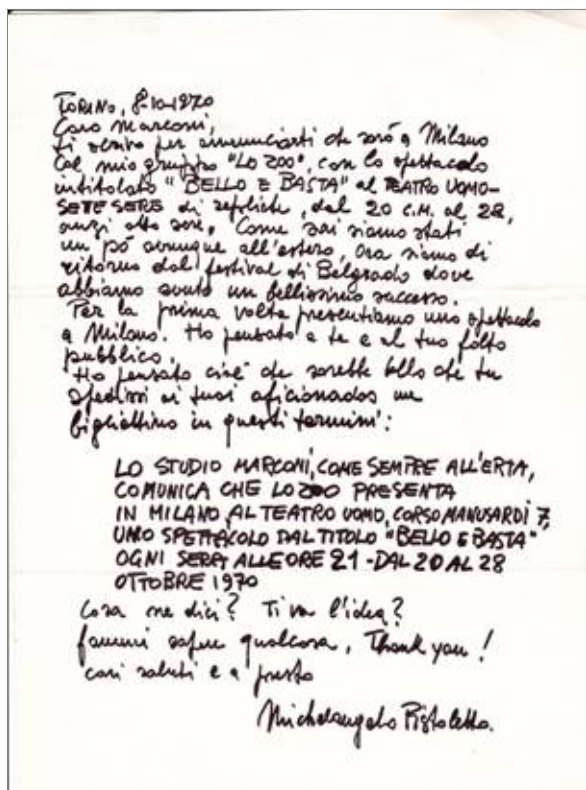 TORINO, 8-10-1970
Caro Marconi,
ti scrivo per annunciarti che sarò a Milano
col mio gruppo "LO ZOO", con lo spettacolo
intitolato "BELLO E BASTA" al TEATRO UOMO-
SETE SERE di repliche, dal 20 C.M. al 28,
anzi otto sere. Come sai siamo stati
un pò ovunque all'estero, ora siamo di
ritorno dal festival di Belgrado dove
abbiamo avuto un bellissimo successo.
Per la prima volta presentiamo uno spettacolo
a Milano. Ho pensato a te e al tuo folto
pubblico.
Ho pensato cioè che sarebbe bello che tu
spedissi ai tuoi aficionados un
bigliettino in questi termini:
LO STUDIO MARCONI, COME SEMPRE ALL'ERTA,
COMUNICA CHE LO ZOO PRESENTA
IN MILANO, AL TEATRO UOMO, CORSO MANUSARDI 7,
UNO SPETTACOLO DAL TITOLO "BELLO E BASTA",
OGNI SERA ALLE ORE 21 - DAL 20 AL 28
OTTOBRE 1970
Cosa ne dici? Ti va l'idea?
fammi sapere qualcosa, Thank you!
cari saluti e a presto
Michelangelo Pistoletto.